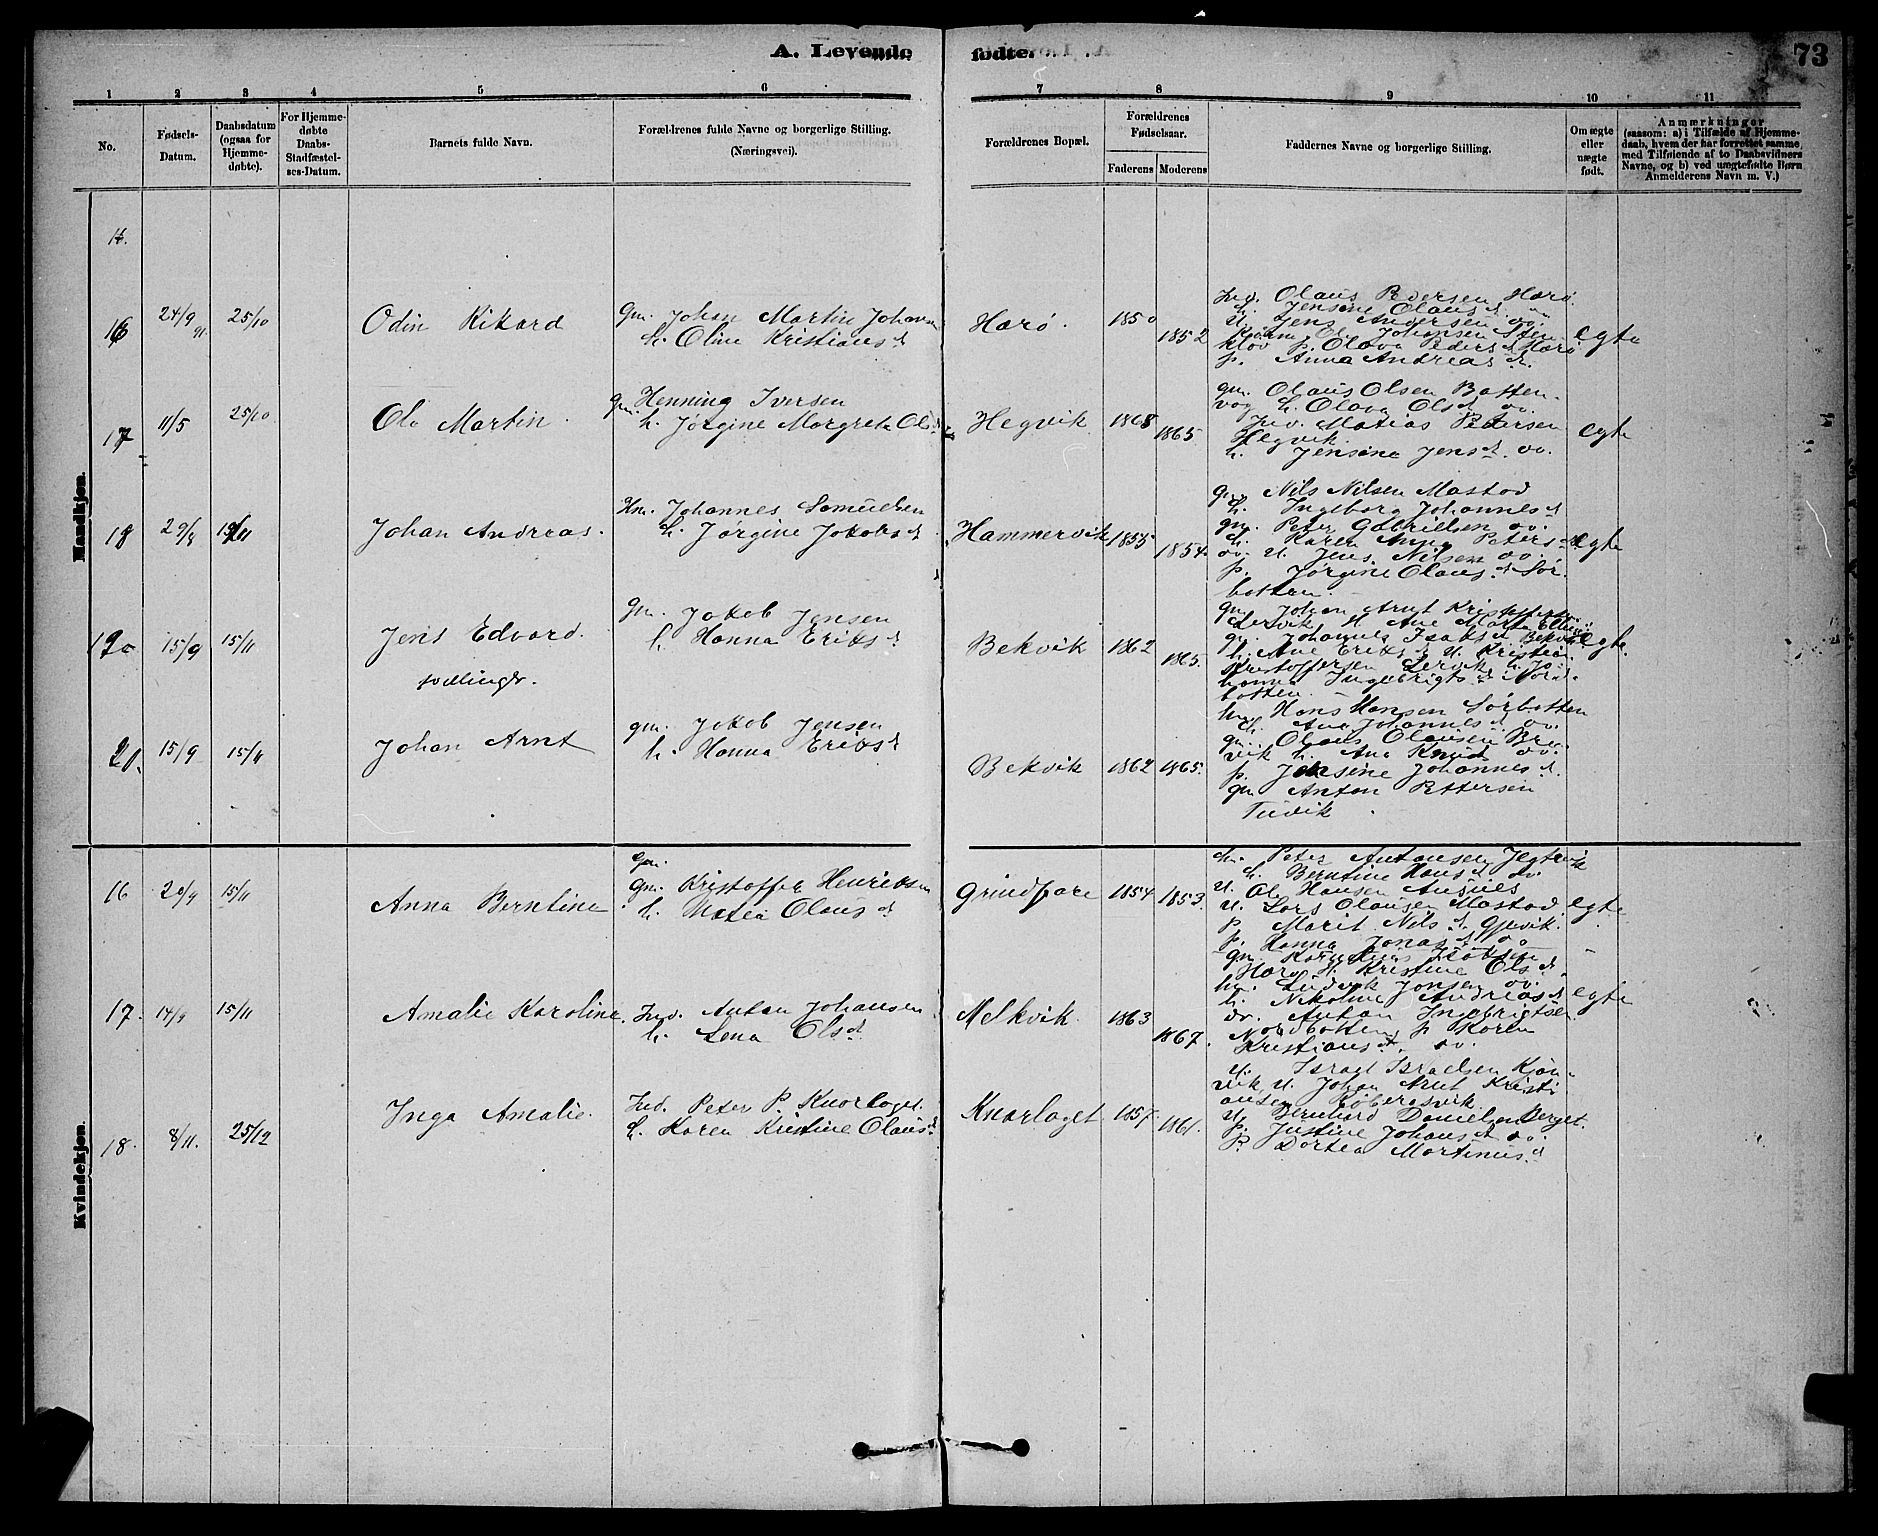 A. Levende fødte. 73
1 2 3 4 5 6 7 8 9 10 11
No.
Fødsels-Datum.
Daabsdatum (ogsaa for Hjemmedøbte).
For Hjemmedøbte Daabs-Stadfæstelses-Datum.
Barnets fulde Navn.
Forældrenes fulde Navne og borgerlige Stilling. (Næringsvei).
Forældrenes Bopæl.
Forældrenes Fødselsaar.
Faderens Moderens
Faddernes Navne og borgerlige Stilling.
Om ægte eller uægte født.
Anmærkninger (saasom: a) i Tilfælde af Hjemmedaab, hvem der har forrettet samme, med Tilføiende af to Daabsvidners Navne, og b) ved uægtefødte Børn Anmelderens Navn m. V.)
Mandkjøn.
16 24/9 25/10 Odin Rikard
gm. Johan Martin Johans
h. Oline Kristians d
Harø. 1850 1852
Ind. Olaus Pedersen Harø
h. Jensine Olaus d
U. Jens Andersen
p. Olava Peders d Harø
p. Anna Andreas d.
egte
17 11/5 25/10 Ole Martin.
gm. Henning Iversen
h. Jørgine Margrete Ols d
Hegvik 1868 1865
gm. Olaus Olsen Botten-
vog h. Olava Ols d oo.
Ind. Matias Pedersen
Hegvik
h. Jensine Jens d. oo.
egte
18 29/8 Johan Andreas.
Hm. Johannes Samuelsen
h. Jørgine Jakobs d
Hammervik 1855 1854
gm. Nils Nilsen Mastad
h. Ingeborg Johannes d
gm. Peter Gabrielsen oo.
h. Karen Anna Peters d
oo. U. Jens Nilsen oo.
p. Jørgine Olaus d Sør-
botten.
egte
19 15/9 15/11 Jens Edvard.
tvillinger.
gm. Jakob Jensen
h. Hanna Eriks d
Bekvik 1862 1865.
gm. Johan Arnt Kristoffersen
gm. Johannes Isaks Bekvik
h. Ane Eriks d U. Kristian
Kristoffersen Lervik h. Jo-
hanna Ingebrigts d Nord-
botten.
egte.
20. 15/9 15/11 Johan Arnt
gm. Jakob Jensen
h. Hanna Eriks d
Bekvik 1862 1865.
Hans Hansen Sørbotten
h. Ane Johannes d oo.
gm. Olaus Olausen Bre-
vik h. Ane Knuds oo.
p. Jensine Johannes d.
gm Anton Pettersen
Kvindekjøn.
16 20/9 15/11 Anna Berntine
gm.
gm. Kristoffer Henriksen
h. Matea Olaus d
Grindfare 1854 1853.
Peter Antonsen Jegtvik
h. Berntine Hans d oo.
U. Ol. Hansen
U. Lars Olausen Mastad
p. Marit Nils d. Gjevik.
p. Hanna Jonas d oo
egte
17. 14/9 15/11 Amalie Karoline.
Ind. Anton Johansen
h. Lena Ols d.
Melkvik. 1863 1867.
gm. Kornelius Isaksen
Harø H. Kristine Ols d.
hm. Ludvik Jonsen oo.
h. Nikoline Andreas d
Anton Ingebrigtsen
Nordbotten p. Karen
Kristians d. oo.
egte
18. 8/11. 25/12 Inga Amalie.
Ind. Peter P. Knarlaget.
h. Karen Kristine Olaus d
Knarlaget 1857. 1861.
U. Israel Israelsen Kjøn-
vik U. Johan Arnt Kristi
ansen Kobergsvik
U. Bernhard Danielsen Berget.
p. Justine Johans d oo.
p. Dortea Martinus d